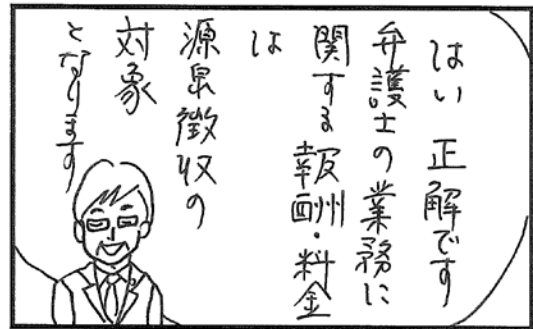 はい 正解です
弁護士の業務に
関する報酬・料金
は
源泉徴収の
対象
となります